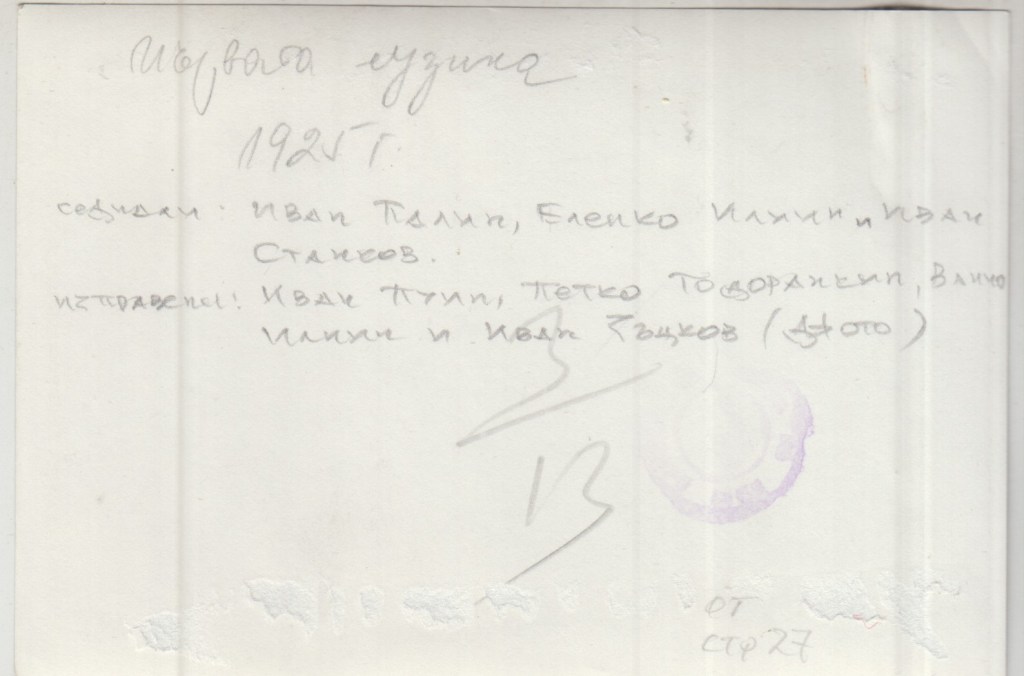 Първата музика
1925 г.
седнали: Иван Палин, Еленко Илиин и Иван
Станков.
изправени: Иван Пуин, Петко Тодоранкин, Ванчо
Илиин и Иван Гъцков (фото)
3
13
от
стр 27